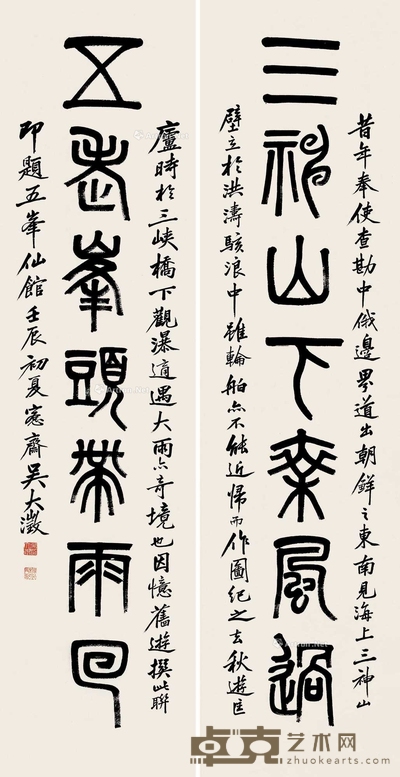 昔年奉使查勘中俄邊界道出朝鮮之東南見海上三神山
三神山下乘風過
壁立於洪濤駭浪中雖輪舶亦不能近歸而作圖紀之去秋遊匡
廬時於三峽橋下觀瀑適遇大雨亦奇境也因憶舊遊撰此聯
五老峯頭帶雨回
即題五峯仙館壬辰初夏愙齋吳大澂
卓克艺术网
www.zhuokearts.com